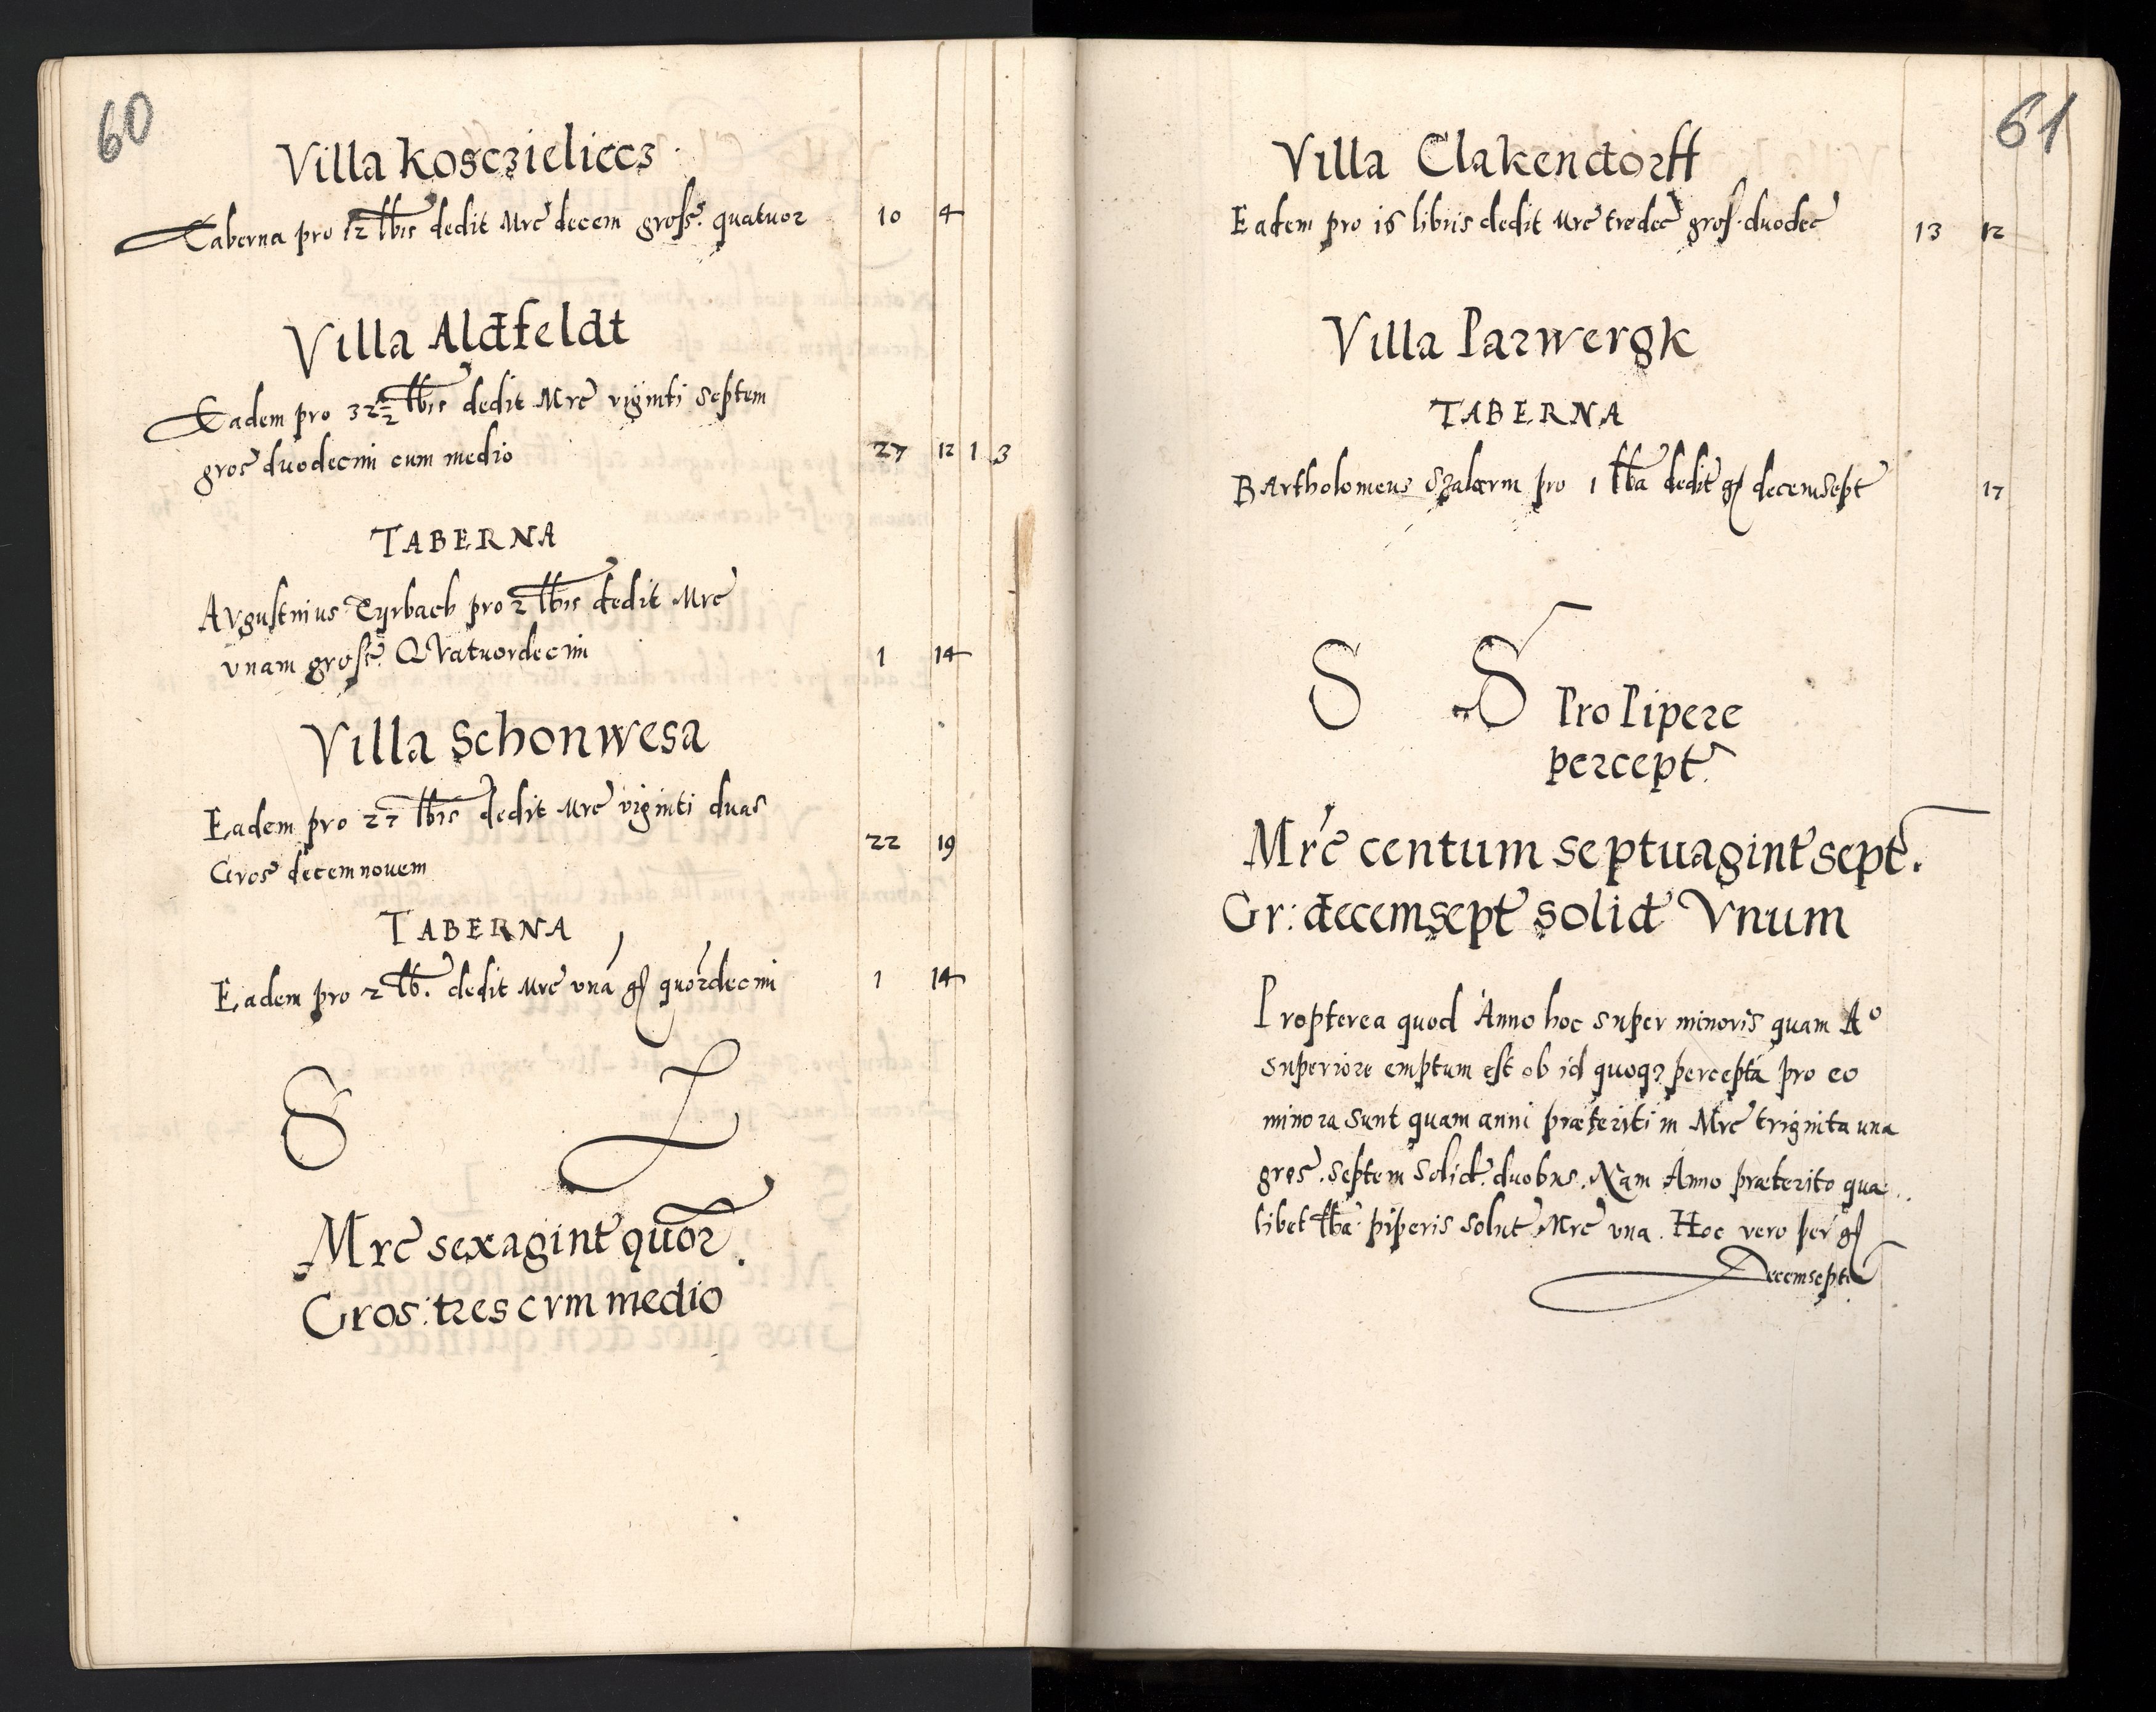 60
Villa Kosczieliccz
Taberna pro 12 lbis dedit Mrc decem gross. quatuor 10 4
Villa Aldfeldt
Eadem pro 32½ lbis dedit Mrc viginti septem
gros duodecim cum medio 27 12 1 3
TABERNA
Avgustinius Tyrbach pro 2 lbis dedit Mrc
vnam gross. QVatuordecim 1 14
Villa Schonwesa
Eadem pro 27 lbis dedit Mrc viginti duas
Gros decemnouem 22 19
TABERNA
Eadem pro 2 lb. dedit Mrc vna g quordecim 1 14
S L
Mrc sexagint quor.
Gros: tres cvm medio
61
Villa Clakendorff
Eadem pro 16 libris dedit Mrc tredec gros. duodec 13 12
Villa Parwergk
TABERNA
Bartholomeus Szalerm pro 1 lba dedit g decemsept 17
S S Pro Pipere
percept
Mrc centum septuagint sept.
Gr: decemsept solid Vnum
Propterea quod Anno hoc super minoris quam A°
superiore emptum est ob id quoq3 percepta pro eo
minora sunt quam anni præteriti in Mrc triginta una
gros. septem solid. duobus. Nam Anno præterito qua..
libet lba piperis solut Mrc vna. Hoc vero per g
Decemsept